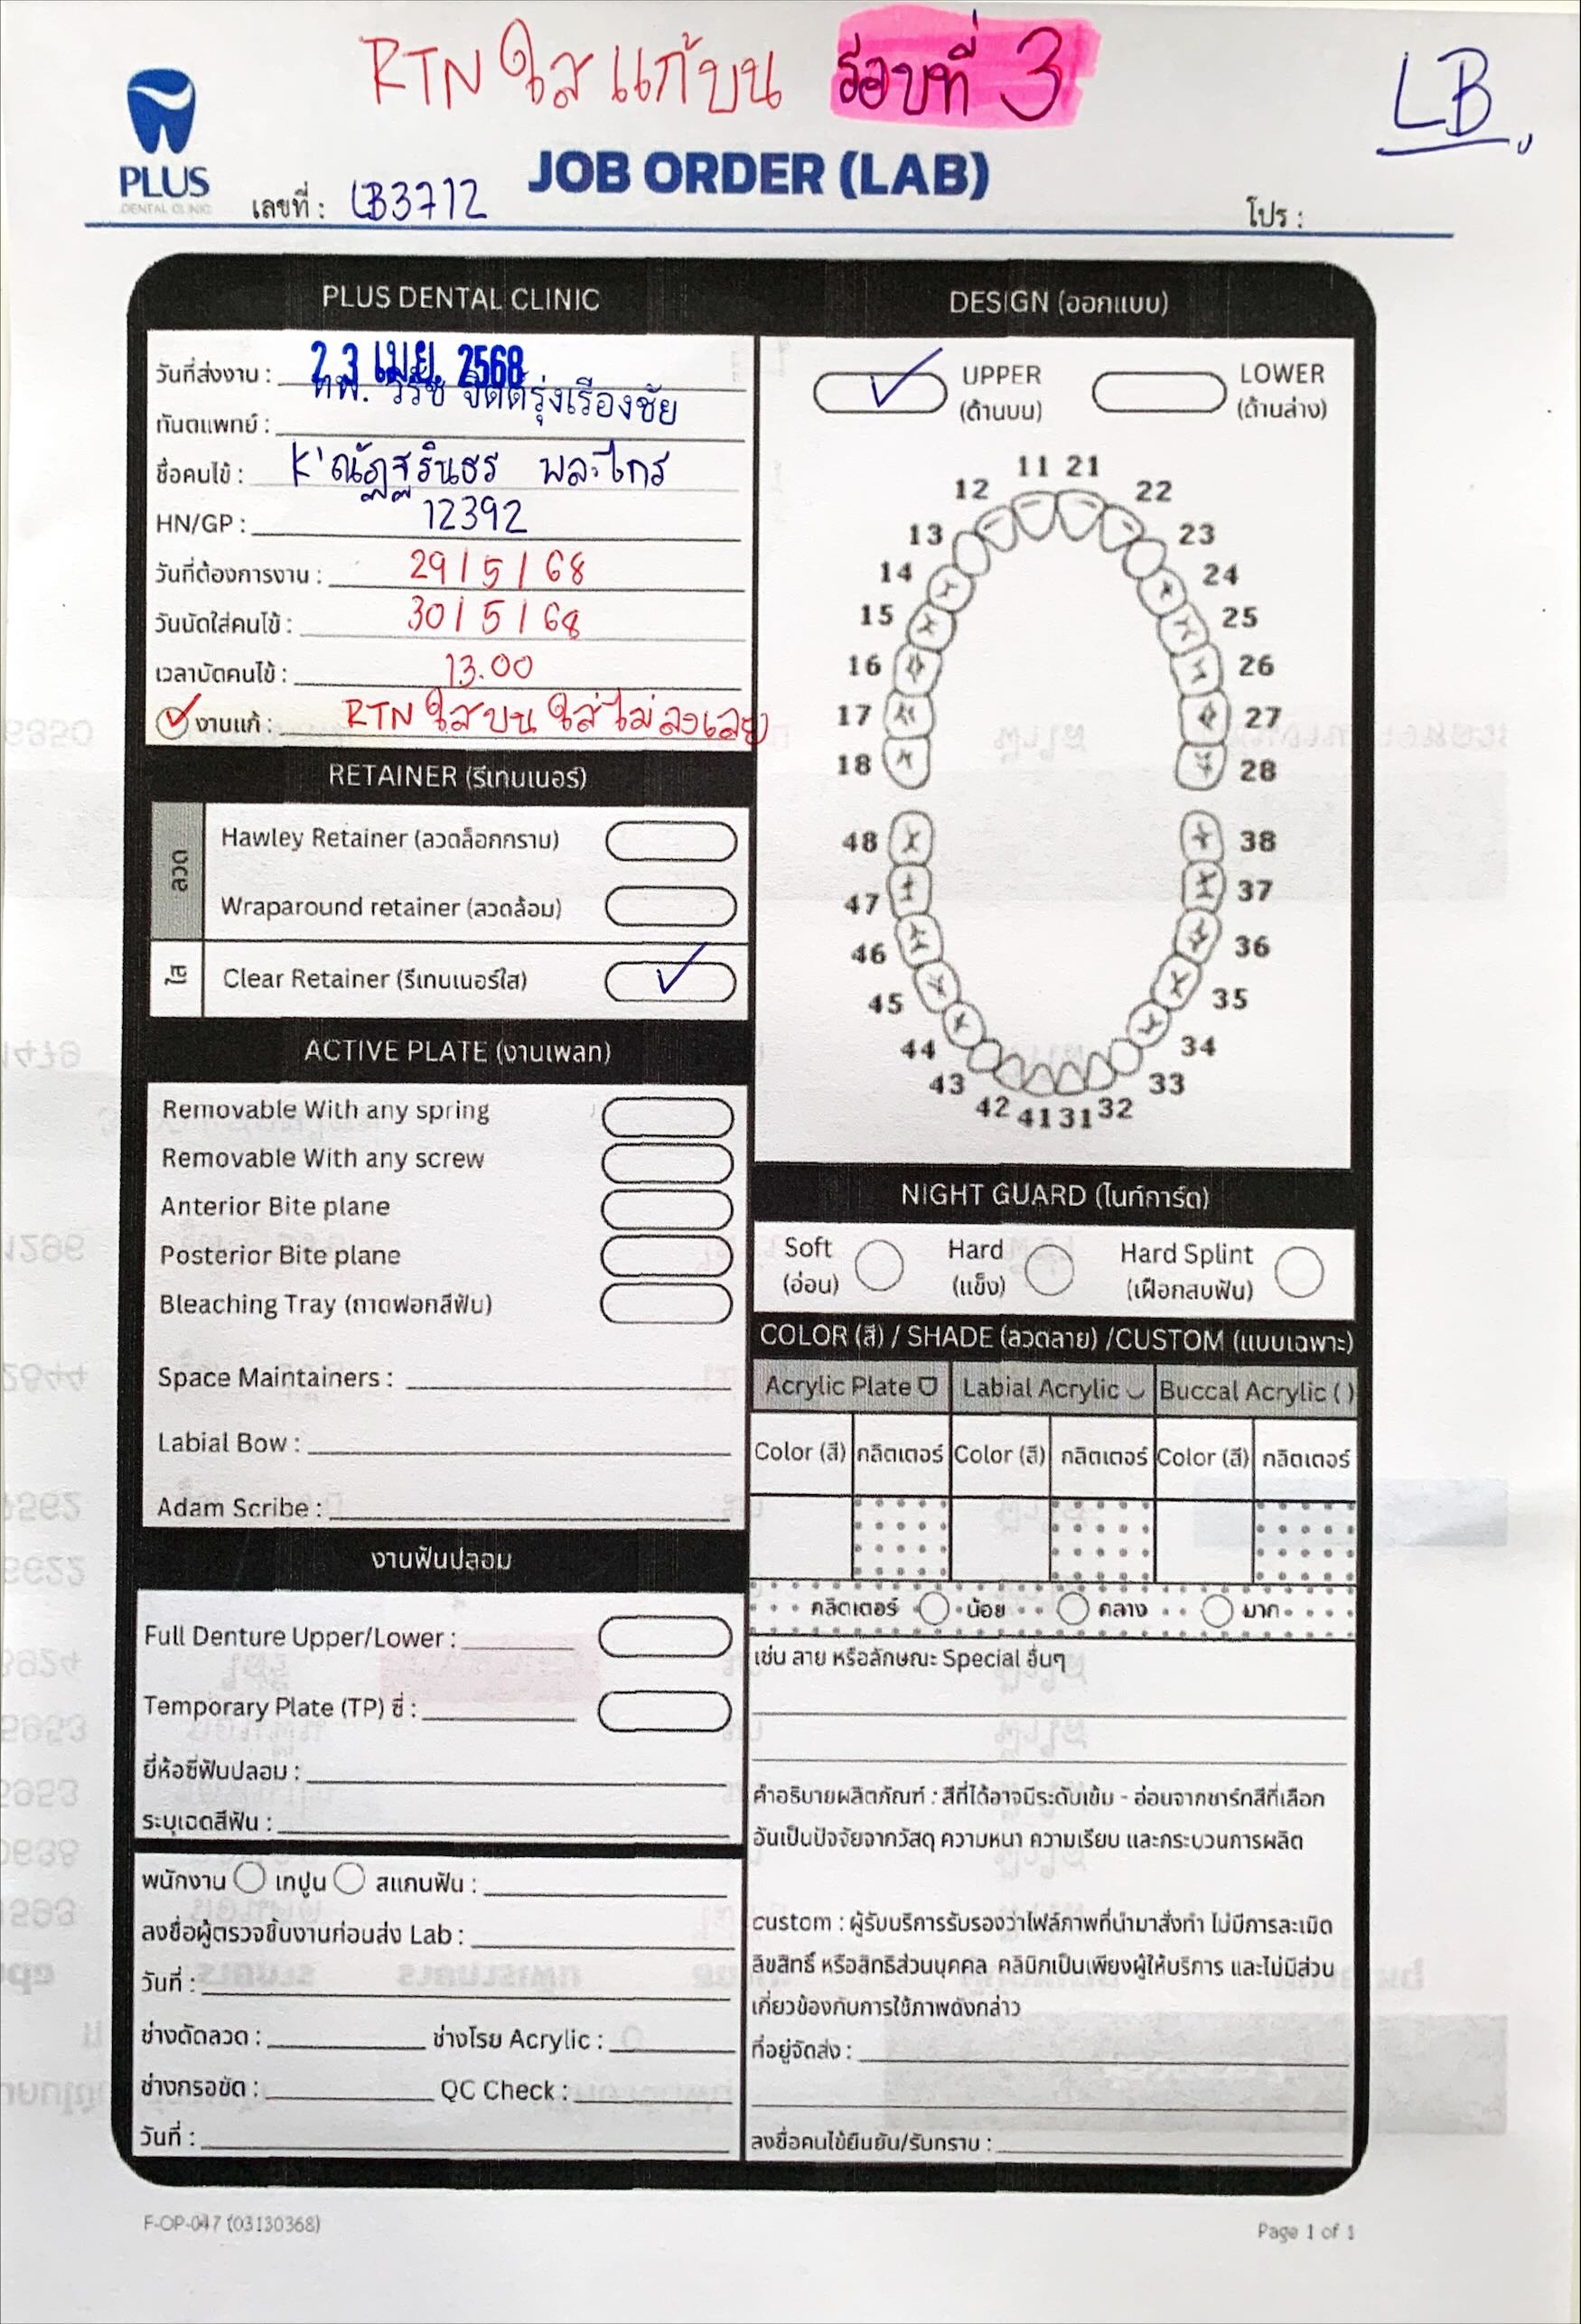 RTN ใส แก้บน รอบที่ 3
LB
PLUS
DENTAL CLINIC
เลขที่ : LB3712
JOB ORDER (LAB)
โปร :
PLUS DENTAL CLINIC
วันที่ส่งงาน : 23 เม.ย. 2568
ทันตแพทย์ : ทพ. วิรัช จิตต์รุ่งเรืองชัย
ชื่อคนไข้ : K'ณัฏฐรินธร พละไกร
HN/GP : 12392
วันที่ต้องการงาน : 29 / 5 / 68
วันนัดใส่คนไข้ : 30 / 5 / 68
เวลานัดคนไข้ : 13.00
งานแก้ : RTN ใส บน ใส่ไม่ลงเลย
RETAINER (รีเทนเนอร์)
ลวด
Hawley Retainer (ลวดล็อกกราม)
Wraparound retainer (ลวดล้อม)
ใส
Clear Retainer (รีเทนเนอร์ใส)
ACTIVE PLATE (งานเพลท)
Removable With any spring
Removable With any screw
Anterior Bite plane
Posterior Bite plane
Bleaching Tray (ถาดฟอกสีฟัน)
Space Maintainers :
Labial Bow :
Adam Scribe :
งานฟันปลอม
Full Denture Upper/Lower :
Temporary Plate (TP) ซี่ :
ยี่ห้อซี่ฟันปลอม :
ระบุเฉดสีฟัน :
พนักงาน เทปูน สแกนฟัน :
ลงชื่อผู้ตรวจชิ้นงานก่อนส่ง Lab :
วันที่ :
ช่างดัดลวด : ช่างโรย Acrylic :
ช่างกรอขัด : QC Check :
วันที่ :
DESIGN (ออกแบบ)
UPPER
(ด้านบน)
LOWER
(ด้านล่าง)
11 21
12 22
13 23
14 24
15 25
16 26
17 27
18 28
48 38
47 37
46 36
45 35
44 34
43 33
42 41 31 32
NIGHT GUARD (ไนท์การ์ด)
Soft
(อ่อน)
Hard
(แข็ง)
Hard Splint
(เฝือกสบฟัน)
COLOR (สี) / SHADE (ลวดลาย) /CUSTOM (แบบเฉพาะ)
Acrylic Plate Labial Acrylic Buccal Acrylic ( )
Color (สี) กลิตเตอร์ Color (สี) กลิตเตอร์ Color (สี) กลิตเตอร์
กลิตเตอร์ น้อย กลาง มาก
เช่น ลาย หรือลักษณะ Special อื่นๆ
คำอธิบายผลิตภัณฑ์ : สีที่ได้อาจมีระดับเข้ม - อ่อนจากชาร์ทสีที่เลือก
อันเป็นปัจจัยจากวัสดุ ความหนา ความเรียบ และกระบวนการผลิต
custom : ผู้รับบริการรับรองว่าไฟล์ภาพที่นำมาสั่งทำ ไม่มีการละเมิด
ลิขสิทธิ์ หรือสิทธิส่วนบุคคล คลินิกเป็นเพียงผู้ให้บริการ และไม่มีส่วน
เกี่ยวข้องกับการใช้ภาพดังกล่าว
ที่อยู่จัดส่ง :
ลงชื่อคนไข้ยืนยัน/รับทราบ :
F-OP-047 (03130368)
Page 1 of 1